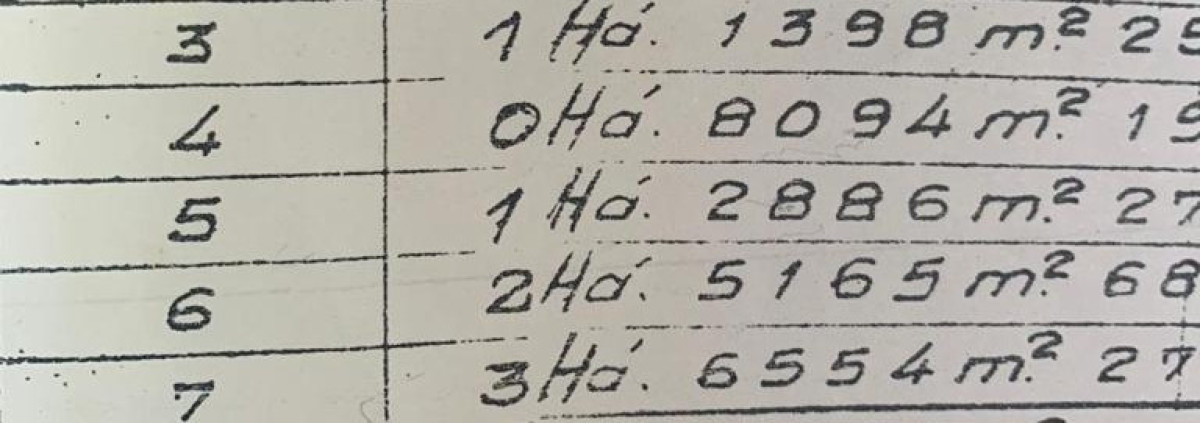 3 1 Há. 1398 m.² 25
4 0 Há. 8094 m.² 19
5 1 Há. 2886 m.² 27
6 2 Há. 5165 m.² 68
7 3 Há. 6554 m.² 27